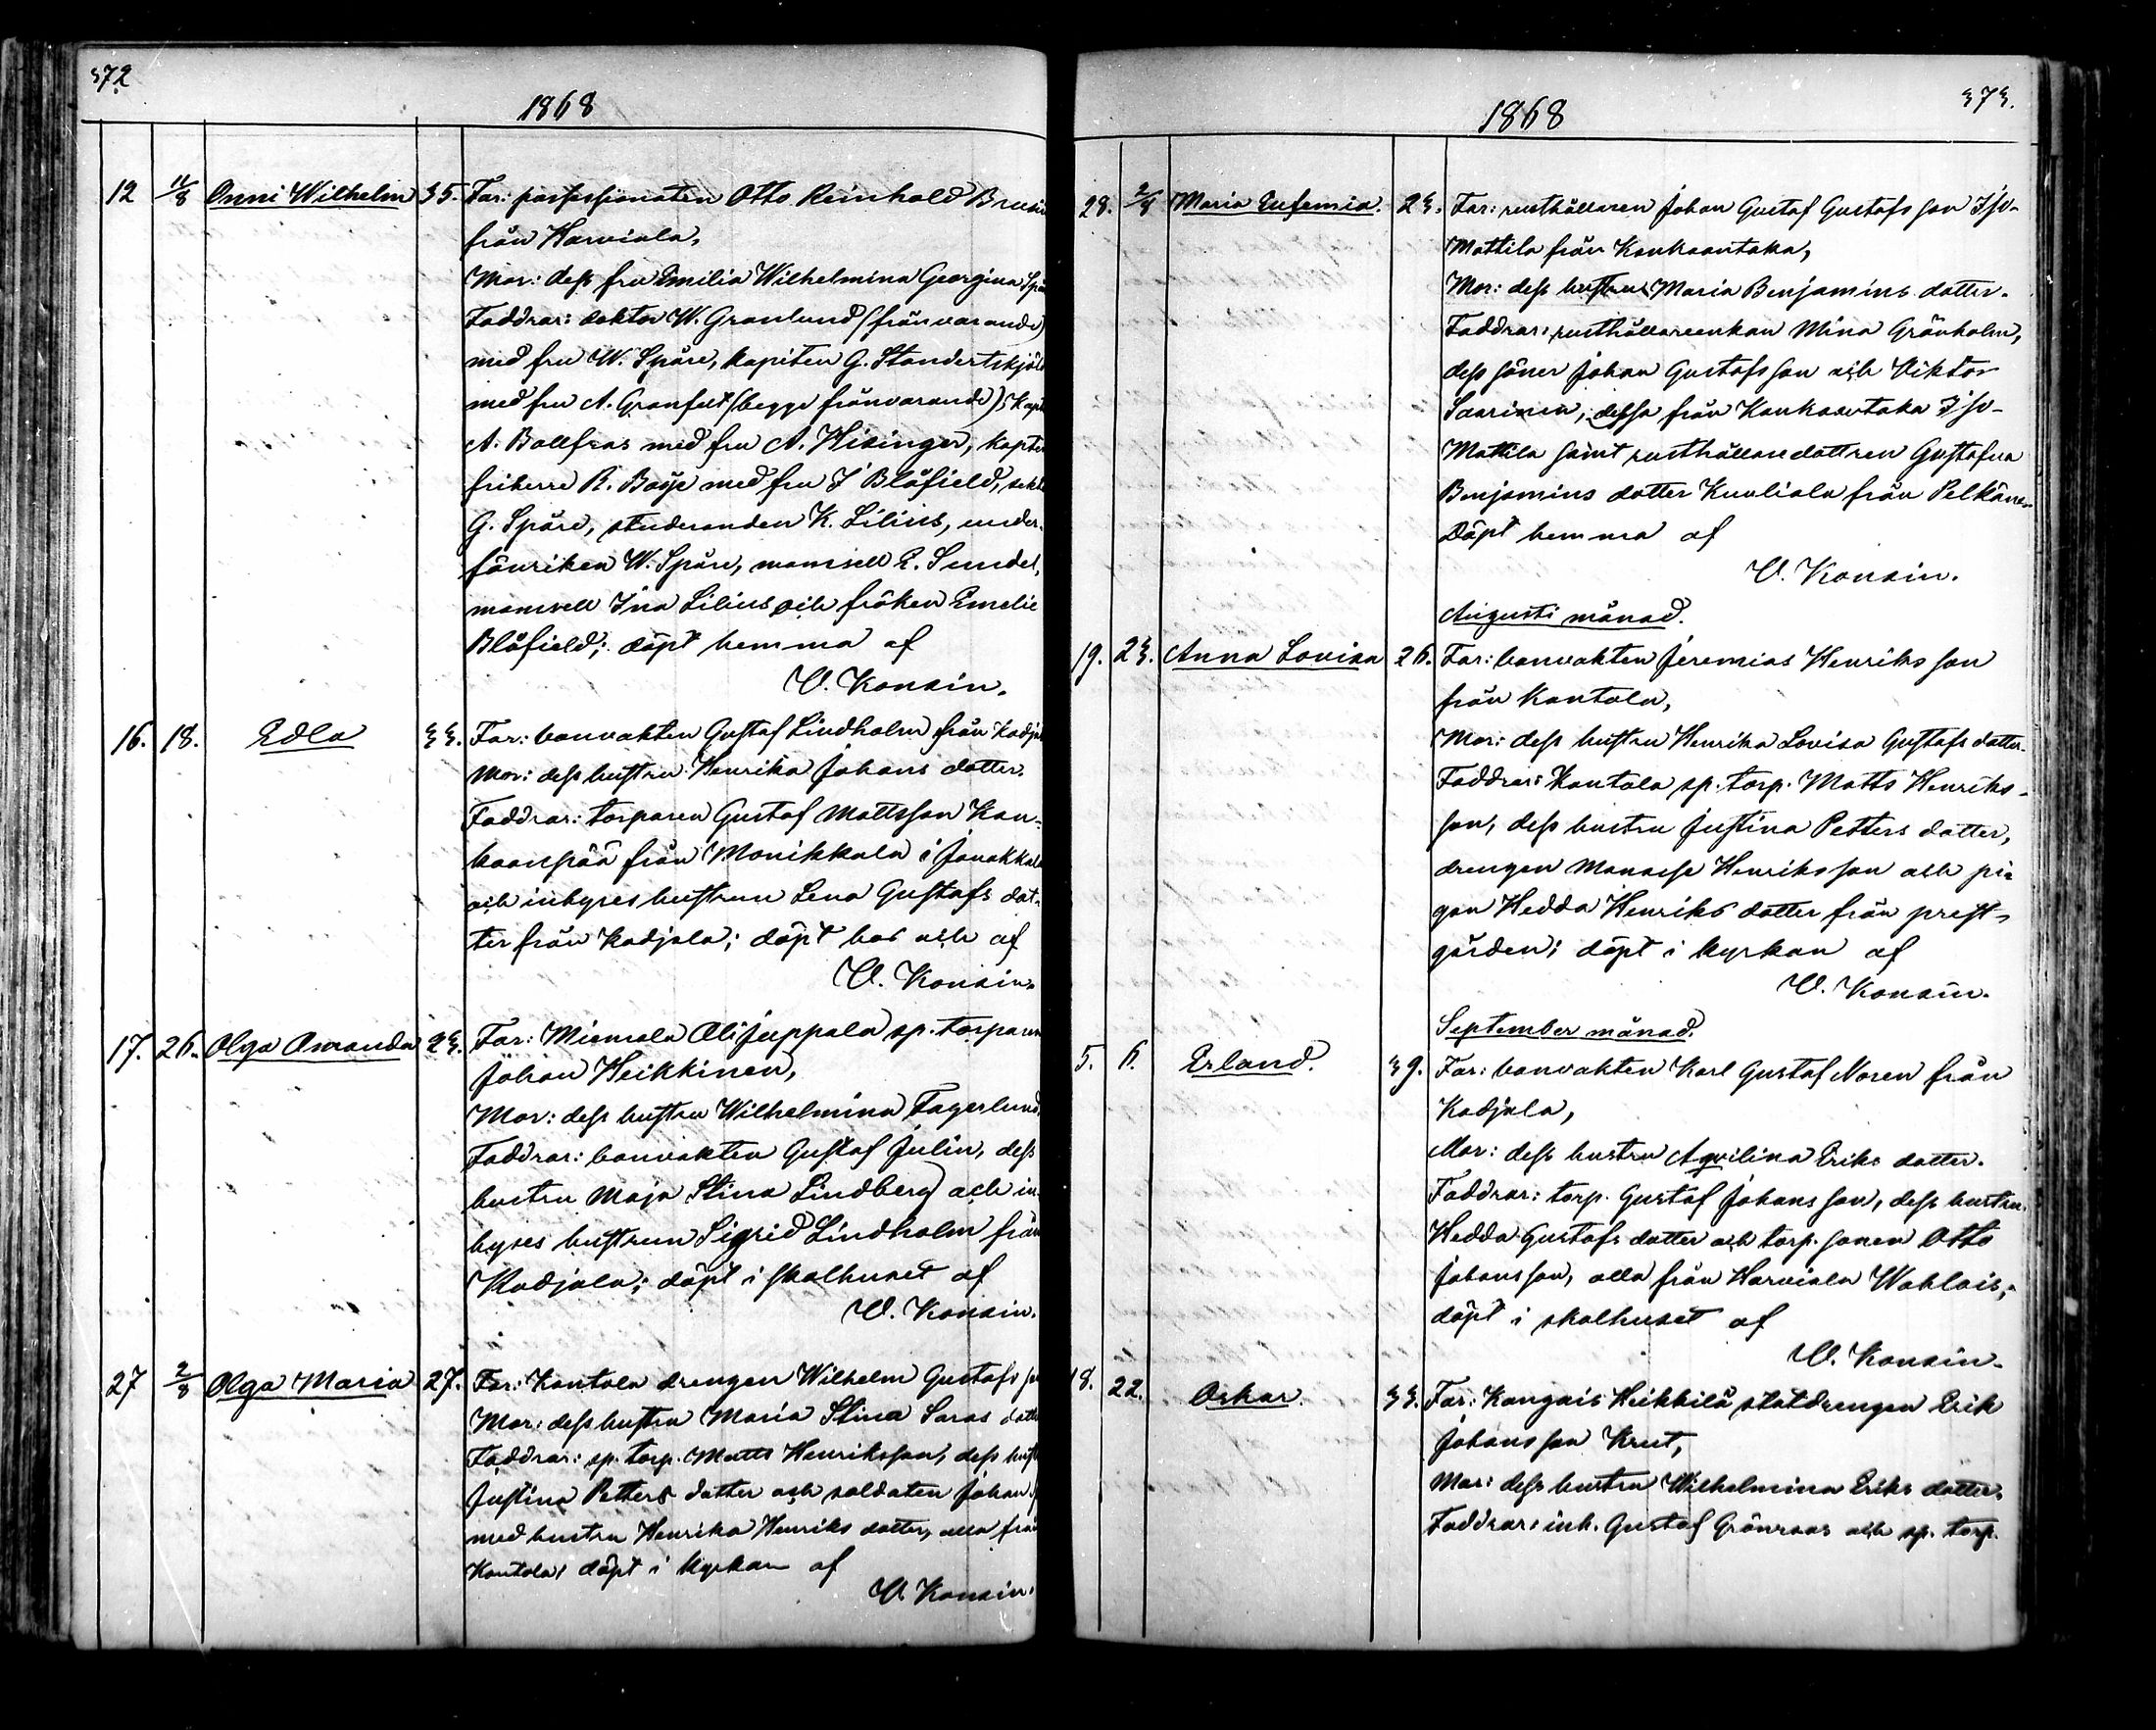 372
1868
12 11/8 Onni Wilhelm 35. Far: possessionaten Otto Reinhold
från Harviala,
Mor: dess fru Emilia Wilhelmina Georgina
Faddrar: doktor W. Granlund (frånvarande)
med fru W. Spåre, kapiten G.
med fru A. Granfelt (begge frånvarande),
A. Bollfras med fru A. Hisinger,
friherre R. Boije med fru I Blåfield,
G. Spåre, studeranden K. Lilius, under-
fänriken W. Spåre, mamsell E.
mamsell Ina Lilius och fröken Emelie
Blåfield; döpt hemma af
V. Konsin.
16. 18. Edla 33. Far: banvakten Gustaf Lindholm från
Mor: dess hustru Henrika Johans dotter.
Faddrar: torparen Gustaf Mattsson Kan-
kaanpää från Monikkala i
och inhyses hustrun Lena Gustafs dot-
ter från Kadjala; döpt hos och af
V. Konsin.
17. 26. Olga Amanda 23. Far: Miemala Ali Juppala sp. torparen
Johan Heikkinen,
Mor: dess hustru Wilhelmina Fagerlund,
Faddrar: banvakten Gustaf Julin, dess
hustru Maja Stina Lindberg och in-
hyses hustrun Sigrid Lindholm från
Kadjala; döpt i skolhuset af
V. Konsin.
27 2/8 Olga Maria 27. Far: Kantola drengen Wilhelm Gustafs
Mor: dess hustru Maria Stina Saras
Faddrar: sp. torp. Matts Henriksson, dess
Justina Petters dotter och soldaten Johan
med hustru Henrika Henriks dotter, alla från
Kantola; döpt i kyrkan af
V. Konsin.
373.
1868
28. 2/8 Maria Eufemia. 23. Far: rusthållaren Johan Gustaf Gustafsson Iso-
Mattila från Kankaantaka,
Mor: dess hustru Maria Benjamins dotter.
Faddrar: rusthållareenkan Mina Grönholm,
dess söner Johan Gustafsson och Viktor
Saarinen, dessa från Kankaantaka Iso-
Mattila samt rusthållaredottren Gustafva
Benjamins dotter Kuuliala från Pelkäne.
Döpt hemma af
V. Konsin.
Augusti månad.
19. 23. Anna Lovisa 26. Far: banvakten Jeremias Henriksson
från Kantola,
Mor: dess hustru Henrika Lovisa Gustafs dotter.
Faddrar: Kantola sp. torp. Matts Henriks-
son, dess hustru Justina Petters dotter,
drengen Manasse Henriksson och pi-
gan Hedda Henriks dotter från prest-
gården; döpt i kyrkan af
V. Konsin.
September månad.
5. 6. Erland. 39. Far: banvakten Karl Gustaf Noren från
Kadjala,
Mor: dess hustru Aqvilina Eriks dotter.
Faddrar: torp. Gustaf Johansson, dess hustru
Hedda Gustafs dotter och torp. sonen Otto
Johansson, alla från Harviala Wahlais;
döpt i skolhuset af
V. Konsin.
18. 22. Oskar. 33. Far: Kangais Heikkilä statdrengen Erik
Johansson Krut,
Mor: dess hustru Wilhelmina Eriks dotter.
Faddrar: inh. Gustaf Grönroos och sp. torp.